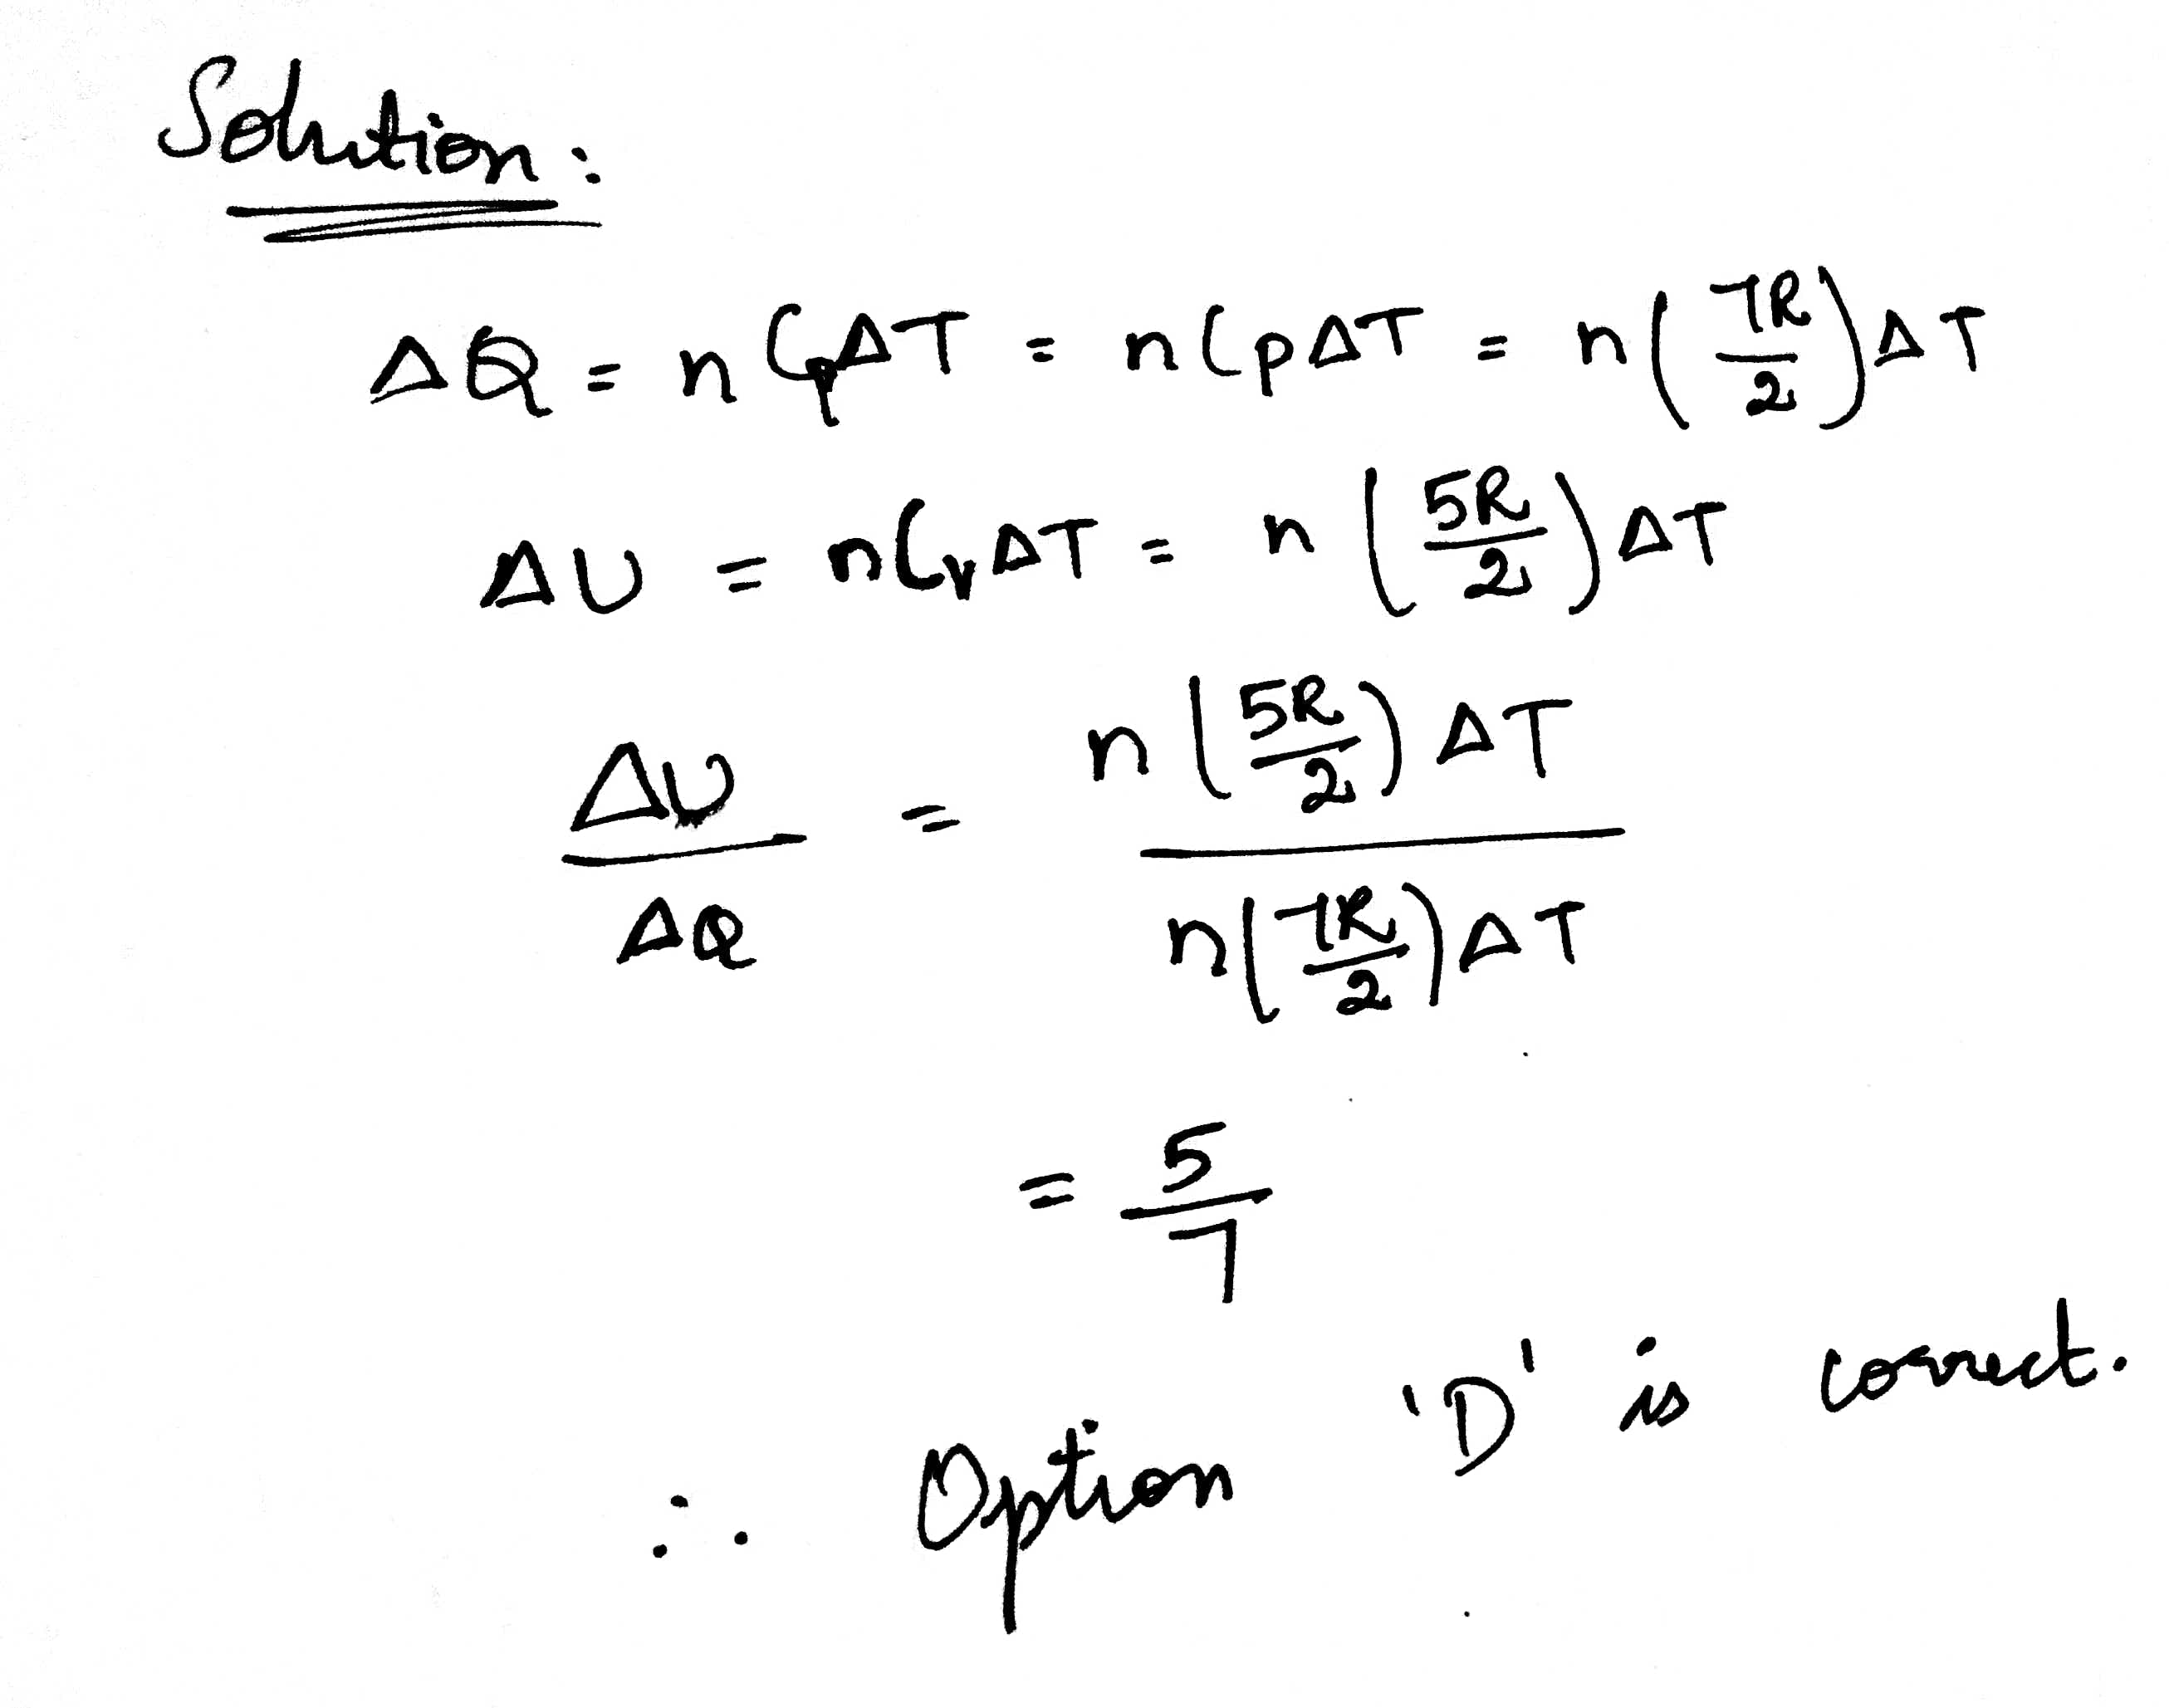 Solution:
ΔQ = nCpΔT = nCpΔT = n(7R/2)ΔT
ΔU = nCvΔT = n(5R/2)ΔT
ΔU/ΔQ = n(5R/2)ΔT / n(7R/2)ΔT
= 5/7
∴ Option 'D' is correct.